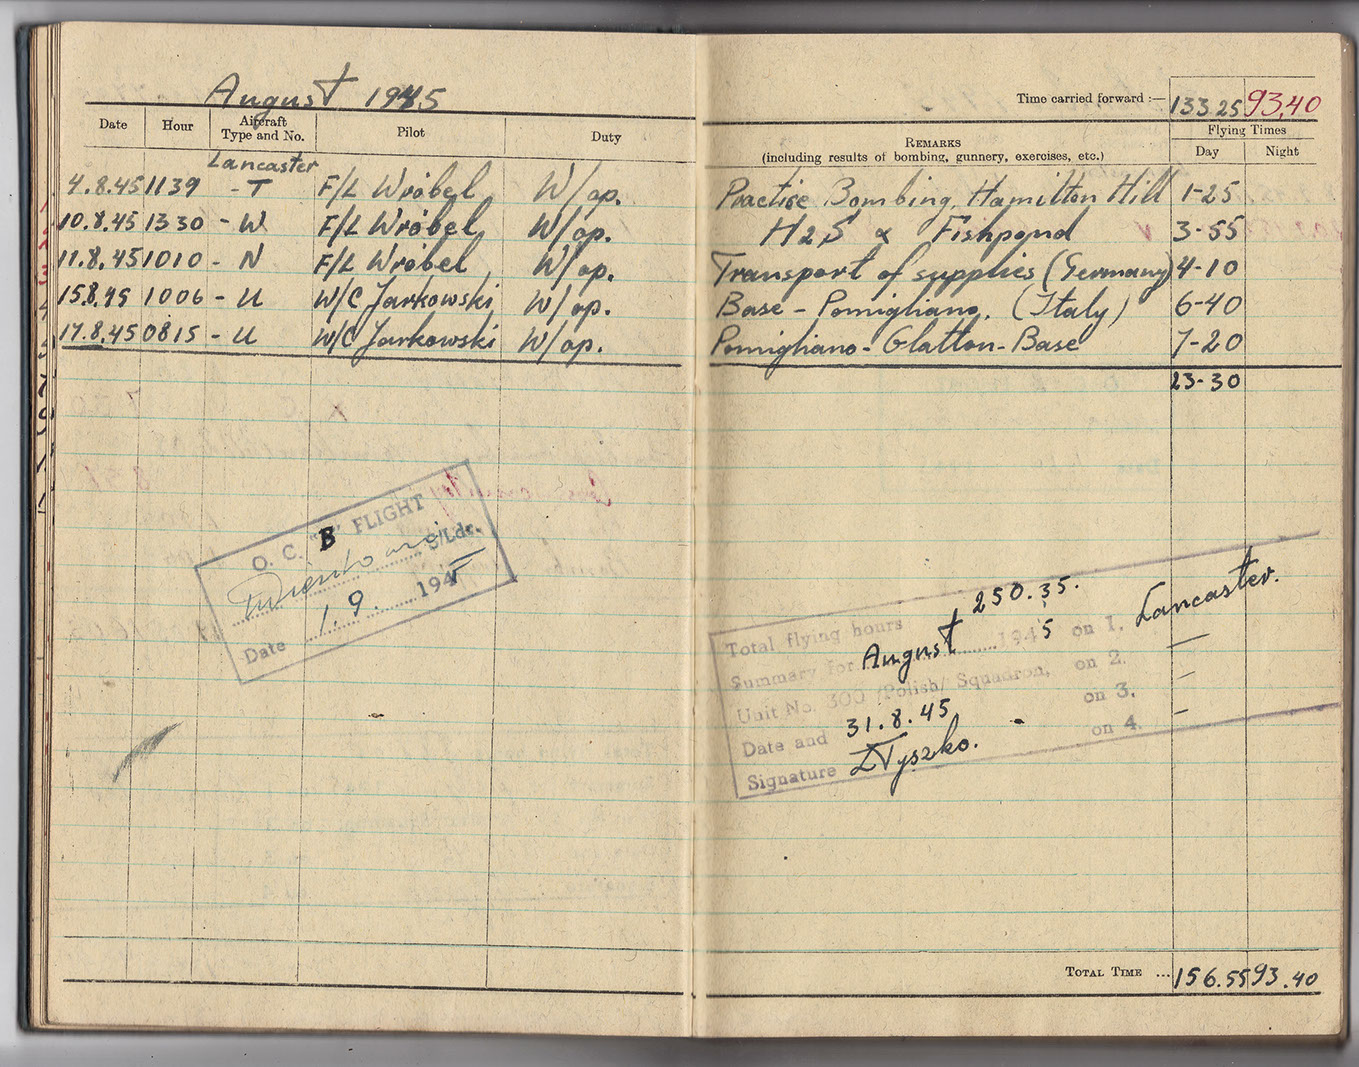 August 1945
Date Hour Aircraft Type and No. Pilot Duty
Lancaster
4.8.45 1139 - T F/L Wróbel W/op.
10.8.45 1330 - W F/L Wróbel W/op.
11.8.45 1010 - N F/L Wróbel W/op.
15.8.45 1006 - U W/C Jarkowski W/op.
17.8.45 0815 - U W/C Jarkowski W/op.
O. C. "B" FLIGHT
S/Ldr.
Date 1.9. 1945
Time carried forward :— 133.25 93,40
Remarks
(including results of bombing, gunnery, exercises, etc.)
Flying Times
Day Night
Practise Bombing, Hamilton Hill 1-25
H2S & Fishpond 3-55
Transport of supplies (Germany) 4-10
Base - Pomigliano, (Italy) 6-40
Pomigliano - Glatton - Base 7-20
23-30
Total flying hours 250.35.
Summary for August 1945 on 1. Lancaster.
Unit No. 300 /Polish/ Squadron, on 2. —
on 3. –
Date and 31.8.45 on 4. –
Signature Tyszko.
Total Time ... 156.55 93.40